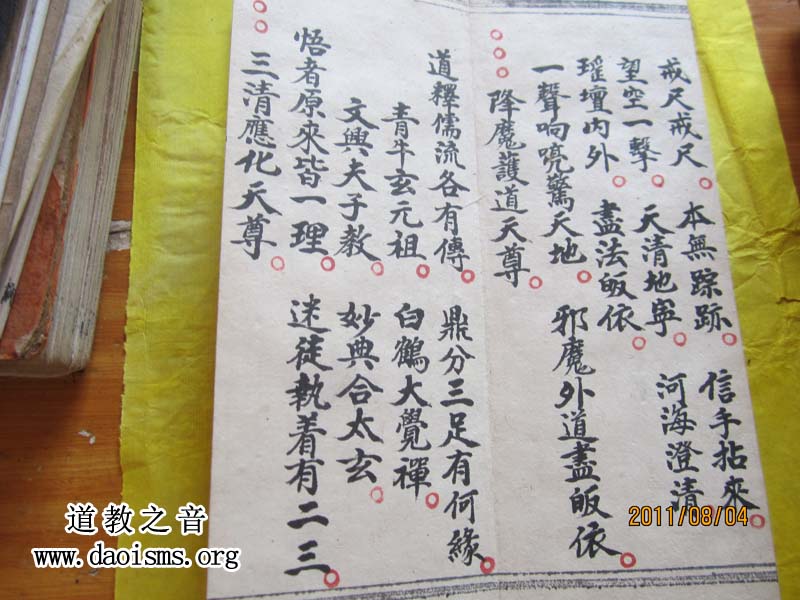 戒尺戒尺 本無踪跡 信手拈來
望空一擊 天清地寧 河海澄清
瑶壇内外 盡法皈依
一聲响喨驚天地 邪魔外道盡皈依
降魔護道天尊
道釋儒流各有傳 鼎分三足有何緣
青牛玄元祖 白鶴大覺禪
文興夫子教 妙典合太玄
悟者原來皆一理 迷徒執着有二三
三清應化天尊
道教之音
www.daoisms.org
2011/08/04